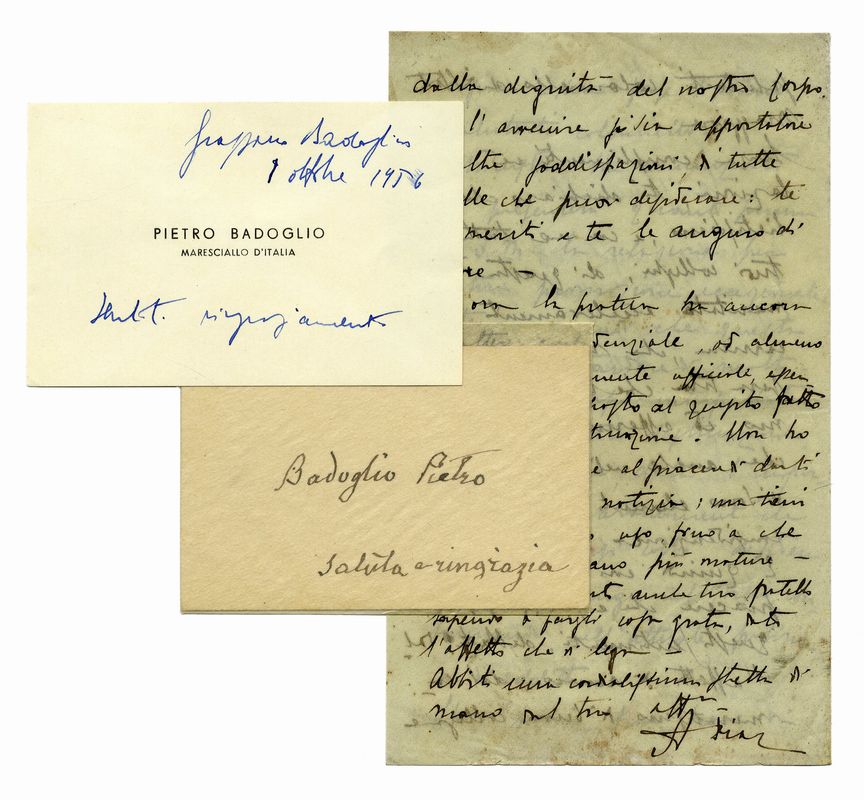 Grazzano Badoglio
1 ottobre 1956
PIETRO BADOGLIO
MARESCIALLO D'ITALIA
ringraziamento
Badoglio Pietro
saluta e ringrazia
dalla dignità del nostro Corpo.
l'avvenire ti sia apportatore
soddisfazioni, di tutte
lle che puoi desiderare: te
meriti e te le auguro di
re —
ora la pratica ha ancora
denziale, od almeno
mente ufficiale, essen
al quesito fatto
Non ho
e al piacere di darti
notizia; ma tieni
uso, fino a che
ano più mature —
anche tuo fratello
sapendo di fargli cosa grata, dato
l'affetto che vi lega —
Abbiti una cordialissima stretta di
mano dal tuo aff.mo
A Diaz